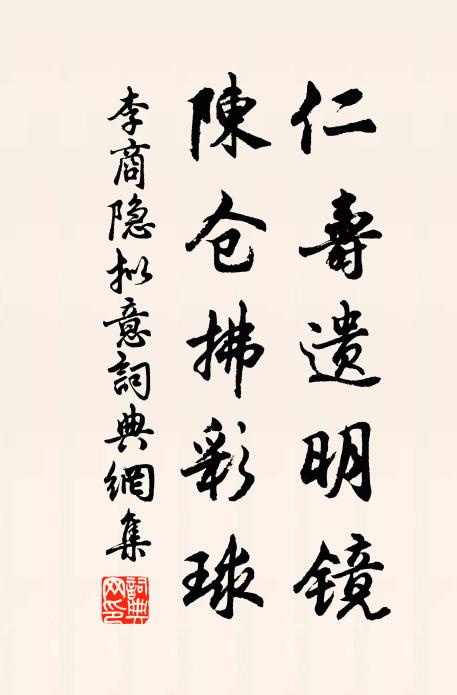 仁壽遗明镜
陳仓拂彩球
李商隐拟意詞典網集
詞典网印